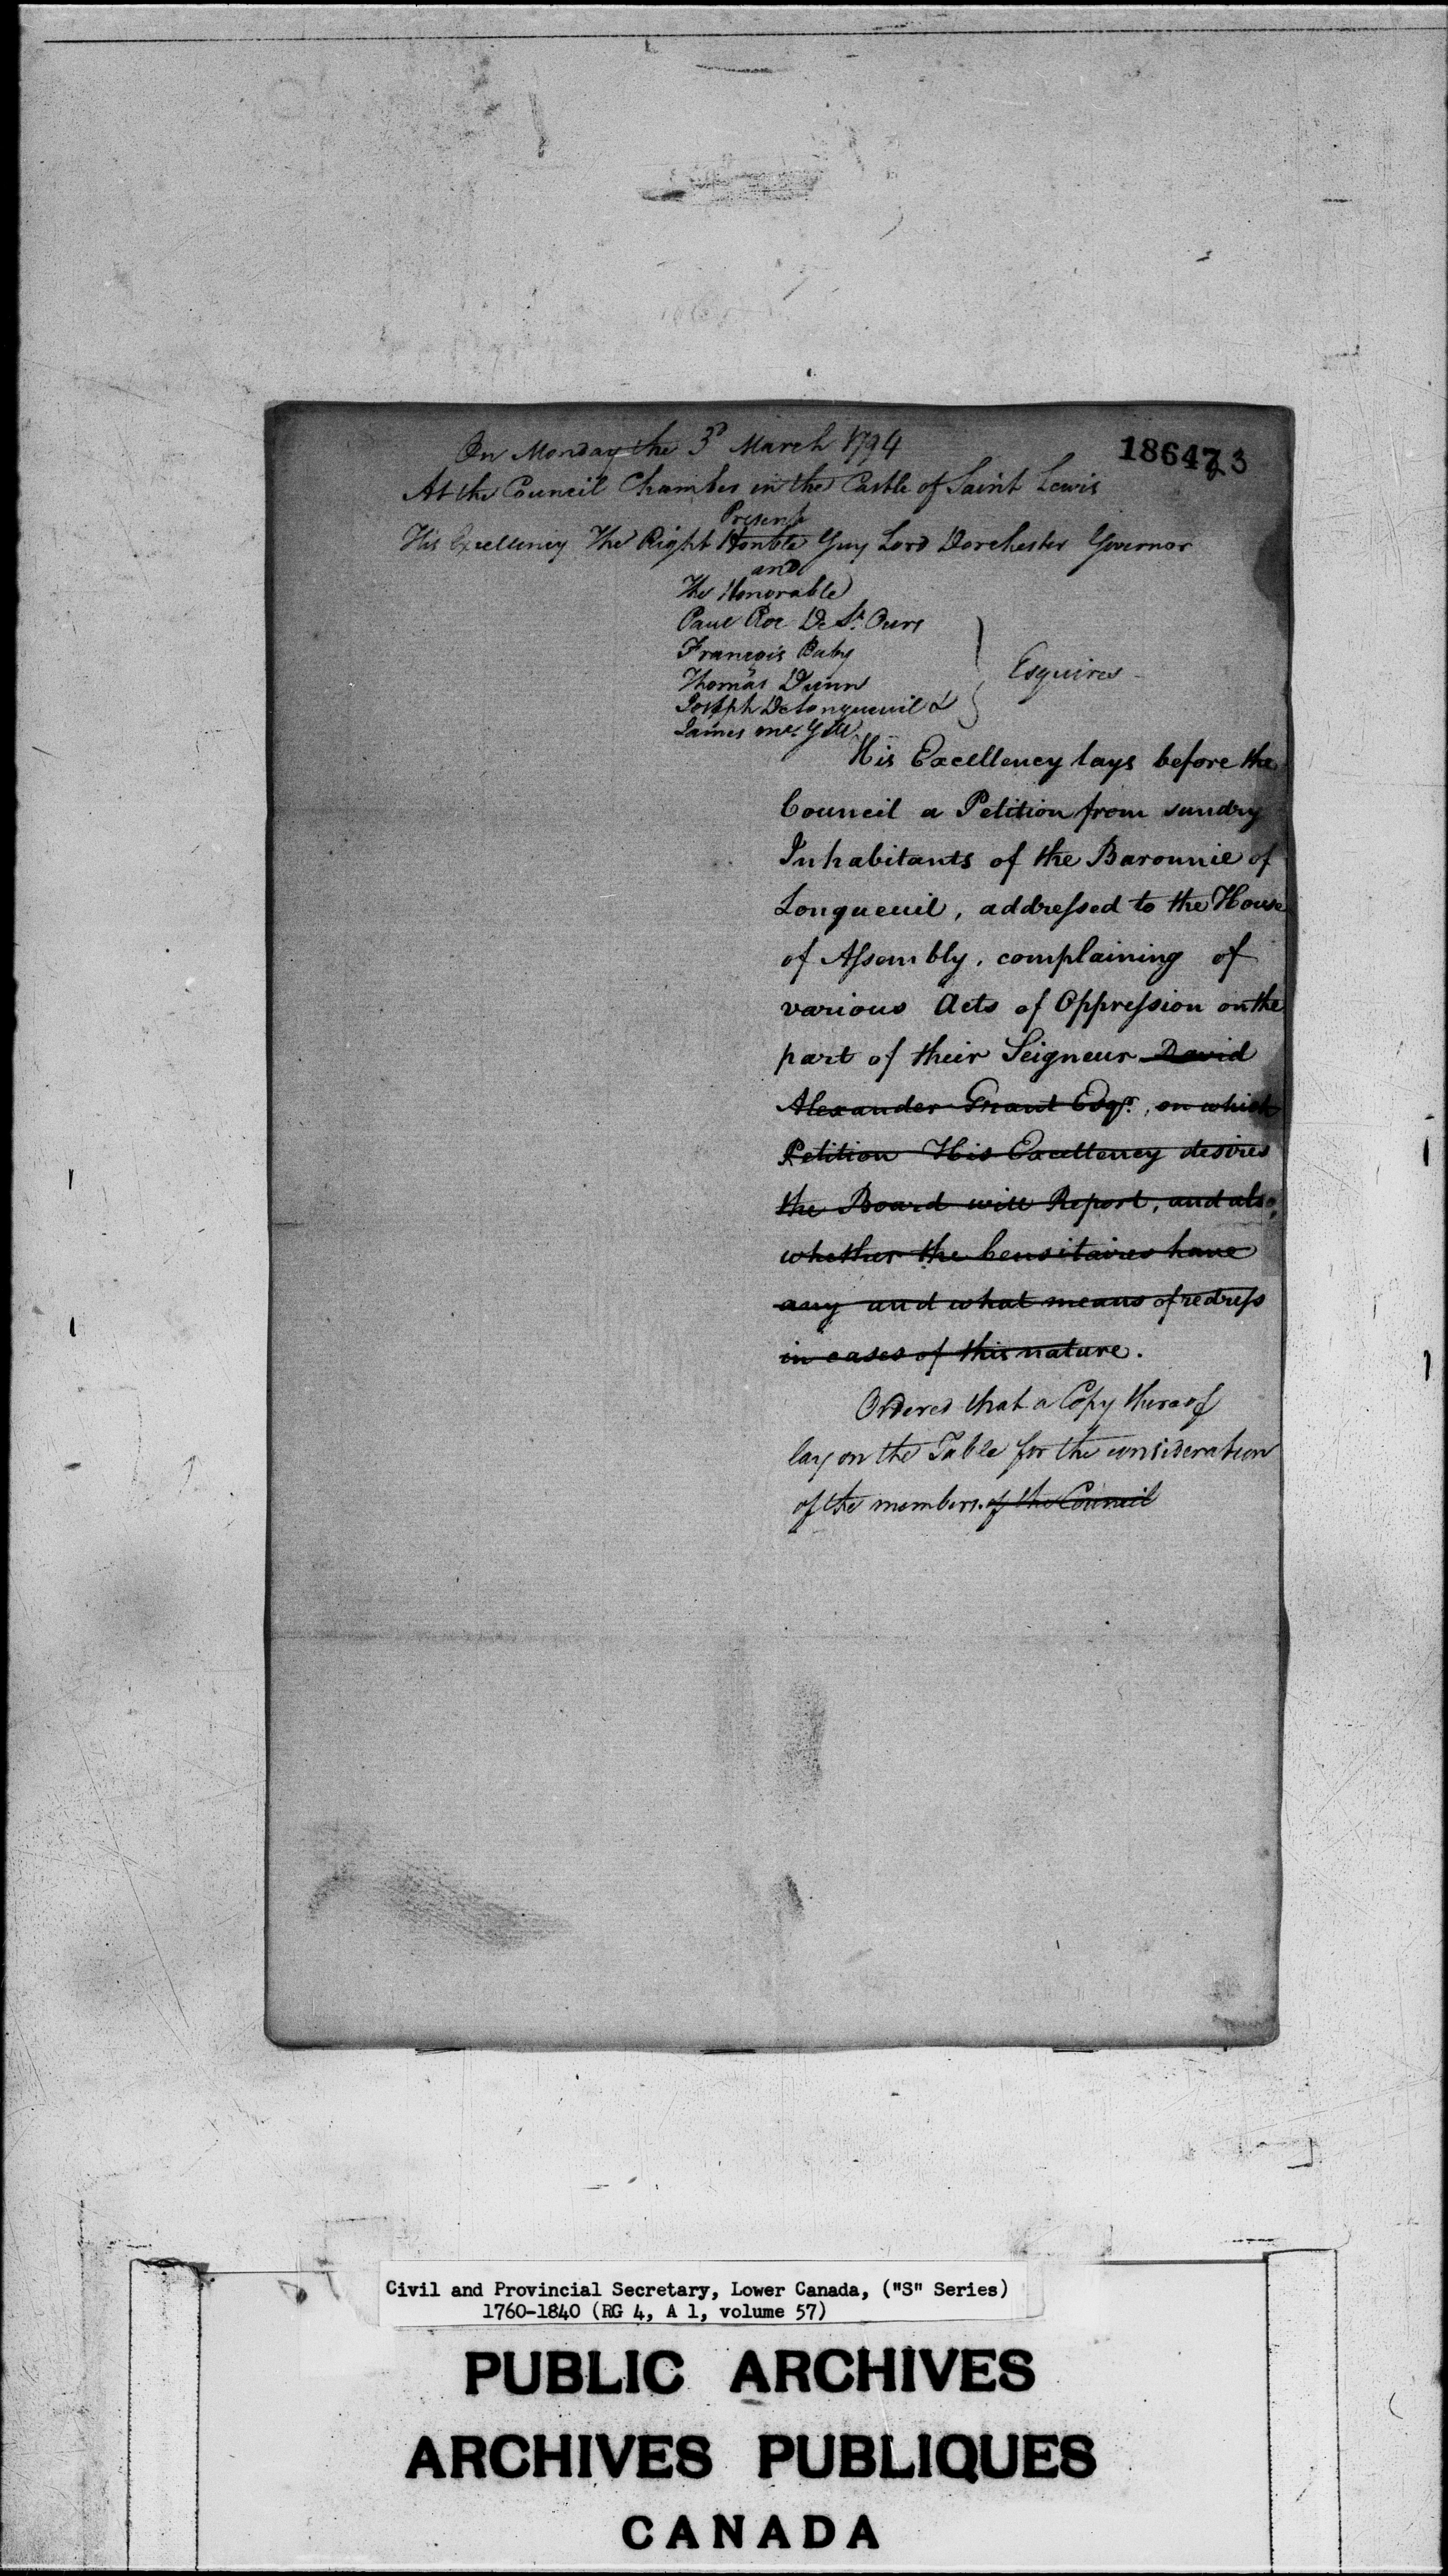 On Monday the 3d March 1794
186473
At the Council Chamber in the Castle of Saint Lewis
Present
His Excellency The Right Honble Guy Lord Dorchester Governor
and
The Honorable
Paul Roc De St. Ours
François Baby
Thomas Dunn
Joseph DeLongueuil &
James Mc. Gill
Esquires
His Excellency lays before the
Council a Petition from sundry
Inhabitants of the Baronnie of
Longueuil, addressed to the House
of Assembly, complaining of
various Acts of Oppression on the
part of their Seigneur David
Alexander Grant Esqr., on which
Petition His Excellency desires
the Board will Report, and also,
whether the Censitaires have
any and what means of redress
in cases of this nature.
Ordered that a Copy thereof
lay on the Table for the consideration
of the members of the Council
Civil and Provincial Secretary, Lower Canada, ("S" Series)
1760-1840 (RG 4, A 1, volume 57)
PUBLIC ARCHIVES
ARCHIVES PUBLIQUES
CANADA